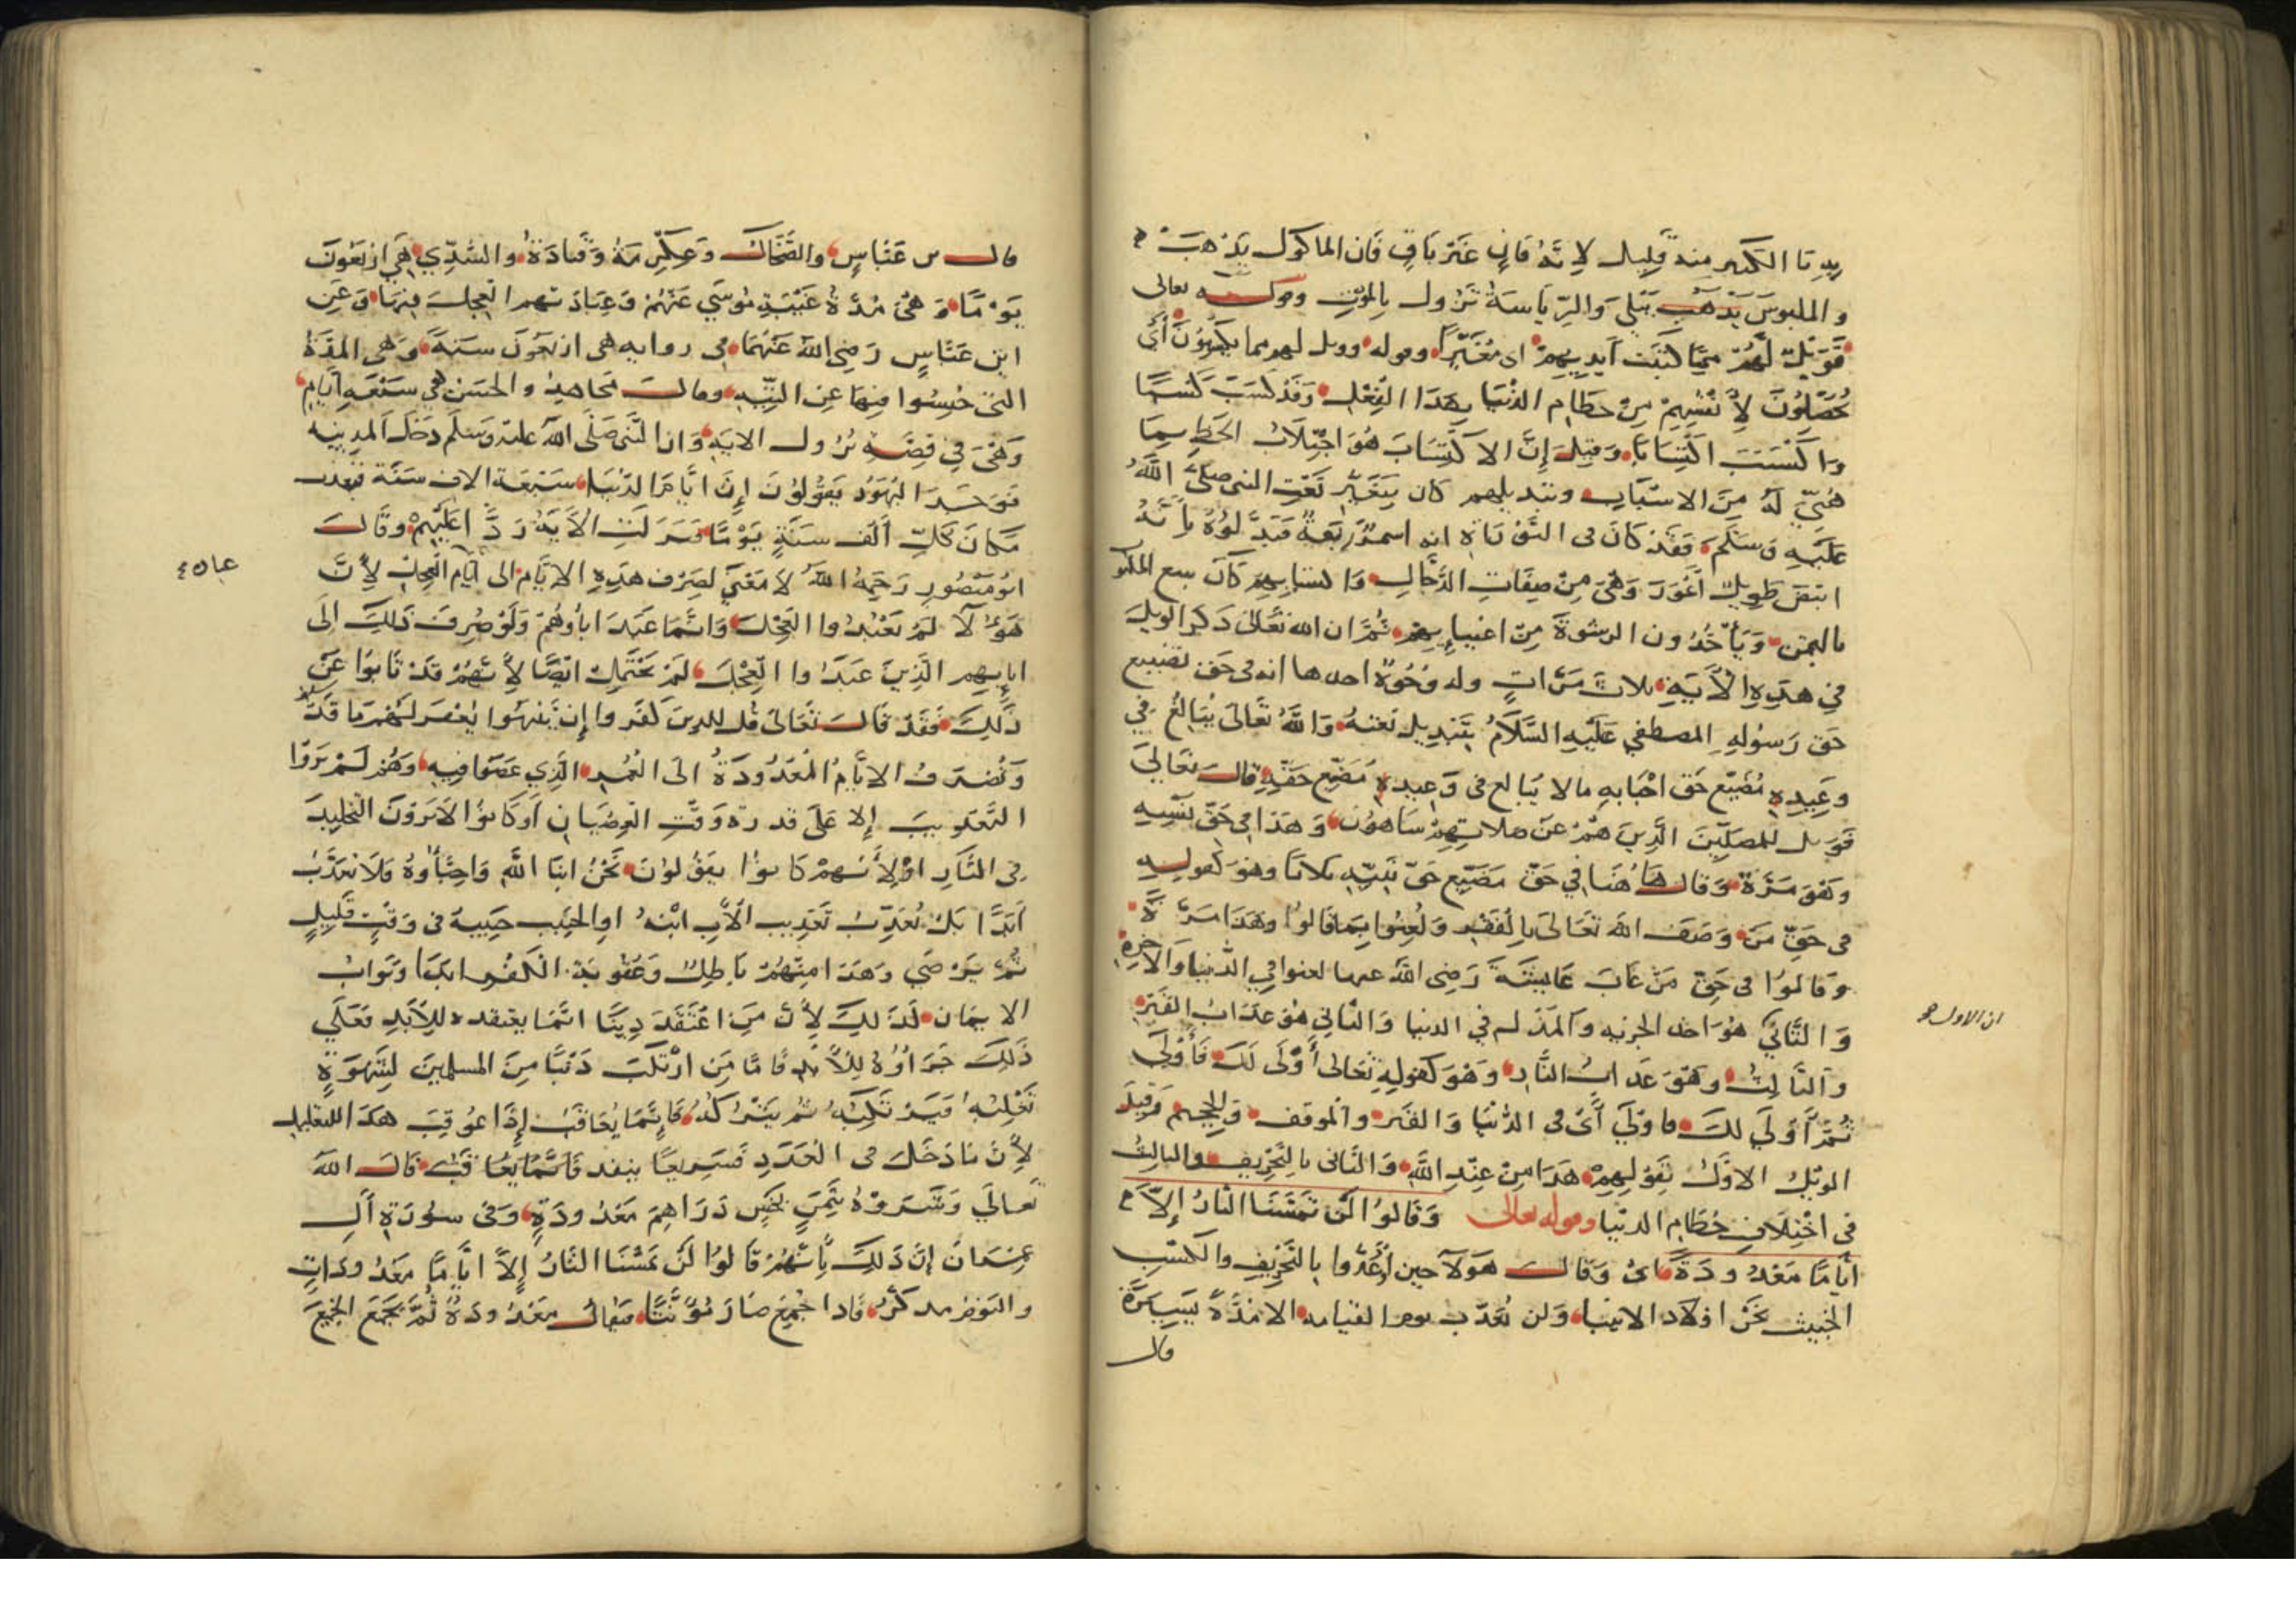 يدِ تا الكثير منه قليل لانَّهُ فانٍ غَيْر بَاقٍ فَان الماكول يَذهَبْ
و الملبوسَ يَذهَب يَبْلى وَالرِّيَاسَةُ تَزُول بِالمَوْتِ وقوله تعالى
فَوَيْلٌ لَهُمْ مِمَّا كتبَت اَيديهِمْ اى مُغَيِّرًا وقوله وويل لهم مما يكْسِبُونَ أَيْ
يُحَصِّلُونَ لِأَنفُسِهِمْ مِنْ حطَامِ الدُنْيَا بِهَذَا الفِعْلِ وَقَدْ كَسَبَ كَسْبًا
وَاكْتَسَبَ اكْتِسَابًا وَقِيلَ إِنَّ الاكْتِسَابَ هُوَ اجْتِلَابُ الحَظِّ بِمَا
هُيِّئَ لَهُ مِنَ الاسْبَابِ وتبديلهم كان بِتَغْيِيْرِ نَعْتِ النبى صلَّى اللّهُ
عَلَيْهِ وَسَلَّمَ فَقَدْ كَانَ فى التَّوْرَاةِ انه اسمرُ رَبَعَةٌ فَبَدَّلُوْهُ بِأَنَّهُ
ابيَضَ طَوِيلٌ أَعْوَرَ وَهْىَ مِنْ صِفَاتِ الدَّجَّالِ وَاكتسابهم كَانَ ببيع المكتوب
بالثمن وَيَأْخُذُون الرشْوَةَ مِنْ اغنيايِهِمْ ثُمَّ ان الله تعَالىَ ذكر الويلَ
فِي هذِهِ الْآيَةِ ثلاثَ مَرَّاتٍ وله وُجُوْهٌ احدها انه فى حَق تضييع
حَق رَسُولِهِ المصطفي عَلَيْهِ السَّلَامُ بِتَبدِيلِ نَعْتهُ وَاللّهُ تَعَالىَ يُبَالغُ فِي
وعِيدِهِ مُضَيِّع حَق احْبَابهِ مالا يُبَالغ فى وَعِيدِهِ مُضَيِّع حَقِّهِ قالَ تعَاليَ
فَوَيل للمصلِّينَ الَّذِينَ هُمْ عنْ صلاتِهِمْ سَاهُوْن وَهَذَا فى حَقِّ نَفْسِهِ
وَهْوَ مَرَّة وَقال هَاهُنَا فِي حَقّ مُضَيِّع حَقّ نَبِيِّهِ ثلاثا وهْوَ كقوله
فى حَقِّ مَنْ وَصَفَ اللّهَ تَعَالىَ بِالْفَقْرِ وَلُعِنُوا بِمَا قَالُوا وهَذَا مَرَّةً
وَقالُوا فى حَقّ مَنْ عَابَ عَايِشَةَ رَضِى اللّهُ عنها لعنوا فِي الدنْيَا وَالاخِرَةِ
وَالثَّانِيْ هُوَ اخذ الجزيه وَالمَذَلهِ فِي الدنيا وَالثَّانِي هُوَ عَذَابُ القَبْرِ
ان الاول
وَالثالِثُ وهوَ عَذَابُ النَّارِ وَهْوَ كَقولِهِ تَعَالىَ أَوْلَى لَكَ فَأَوْلَى
ثُمَّ أَوْلَي لَكَ فاَوْليَ أَيْ فى الدُنْيَا وَالقَبْرِ والموقف فِي الجحيم وَقِيلَ
الوَيْلُ الاوَّلُ بِقَوْلِهِمْ هَذَا مِنْ عِنْدِ اللّهِ وَالثَّانى بالتَّحْرِيف والثالثُ
فى اخْتِلَافِ حُطَامِ الدنْيَا وقوله تعالى وَقَالُوا لَنْ تَمَسَّنَا النَّارُ إِلَّا
أَيَّامًا مَعْدُودَةً اىْ وَقَال هَوْلآ حين اُوعِدُوا بِالتَّحْرِيفِ والكسْبِ
الخبيث نَحْنُ اوْلَاد الانبيا وَلن نُعَذَّبَ يومَ القيامه الا مُدَّةً يَسِيرَةً
قال
قال س عَبَّاسٍ والضَّحَّاك وَعِكْرِمَةُ وَقَتادَةُ والسُّدِّي هِيَ ارْبَعُونَ
يَوْمًا وَهْيَ مُدَّةُ غَيْبَةِ مُوسَي عَنْهُمْ وَعِبَادَتهم العِجلَ فِيْهَا وَعَن
ابن عَبَّاسٍ رَضِيَ اللّهُ عَنْهُمَا فى روايه هى اربَعُونَ سَنَةً وَهِى المدَّةُ
التي حُبِسُوا فِيْهَا عن التِّيهِ وقالَ مُجَاهدٌ والحَسَن هِي سَبْعَةُ ايَّامٍ
وَهْىَ فِي قِصَّةِ نُزُول الايَةِ وَانَّ النَّبِىَّ صَلَّى اللّهُ علَيْهِ وَسَلَّمَ دَخَلَ المدِينه
فوَجَدَ اليَهُوْد يَقُوْلُوْنَ إِنَّ أَيَّامَ الدُّنْيَا سَبْعَة الاف سَنَة فنعذب
مَكَانَ كُلِّ أَلْفِ سَنَةٍ يَوْمًا فنَزَلَتِ الآيَةُ رَدًّا عَلَيْهِمْ وقَالَ
ابُو مَنْصُورٍ رَحِمَهُ اللّهُ لاَ مَعْنَي لِصَرْفِ هَذِهِ الايَّامِ الى أَيَّامِ العِجْلِ لِأَنَّ
عباده
هَوْلآ لَمْ يَعْبُدُوا العِجْلَ وَانَّمَا عَبَدَ ابَاؤُهُمْ وَلَوْ صُرِفَ ذَلِكَ إِلَى
ابايِهِم الَّذِينَ عَبَدُوا العِجْلَ لَمْ يَحْتَمِلْ ايْضًا لِأَنَّهُمْ قَدْ تَابُوا عَنْ
ذَلِكَ فَقَدْ قَالَ تَعَالىَ قُل للذِينَ كَفَروا إِنْ يَنْتَهُوا يُغْفَرْ لَهُمْ مَا قَدْ سَلَفَ
وَتُصْرَفُ الايَّامُ المَعْدُودَةُ الىَ العُمُرِ الَّذِي عَصَوْا فِيهِ وَهُمْ لَمْ يَرَوْا
التَّعْذِيبَ إِلا عَلَى قدرِ وَقْتِ العِصْيَانِ أَوْ كَانُوا لاَ يَرَوْنَ التخلِيدَ
فِى النَّارِ أَوْلأَنَّهُمْ كَانُوا يَقُوْلُوْنَ نَحْنُ ابْنَا اللّهِ وَاحِبَّاؤُهُ فَلَا نُعَذَّبُ
اَبَدًا بَلْ نُعَذَّبُ تَعْذِيب الْأَبِ ابْنهُ اوِ الحَبِيب حَبِيبهُ فى وَقْتٍ قَلِيلٍ
ثُمَّ يَرْضَي وَهَذَا مِنْهُمْ بَاطِلٌ وَعُقُوبَةُ الْكُفْرِ أَبَدًا وَثَوَابُ
الايمَانِ كَذَلِكَ لِأَنَّ مَنِ اعْتَقَدَ دِينًا انَّمَا يعتقده لِلْأَبَدِ فَعَلَي
ذَلِكَ جَزَاؤُهُ لِلْأَبَدِ فَامَّا مَنِ ارْتَكَبَ ذَنْبًا مِنَ المسلمينَ لِشَهْوَةٍ
تَغْلِبُهُ فَيَرْتَكِبُهُ ثُم يَتْرُكُهُ فَإِنَّمَا يُعَاقَبُ إِذَا عُوْقِبَ هَذَا للتعليل
لِأَنَّ مَا دَخَلَ فى العَدَدِ فَسَرِيعًا ينفد فَانَّمَا يُعَاقَبُ قَالَ اللّهُ
تَعالَي وَشَرَوْهُ بِثَمَنٍ بَخْسٍ دَرَاهِمَ مَعْدُودَةٍ وَفى سُورَةِ ألِ
عِمرَانَ إنَّ ذَلِكَ بِأَنَّهُمْ قَالُوا لَنْ تَمَسَّنَا النَّارُ إِلَّا ايَّامًا مَعْدُودَاتٍ
واليَوْمُ مذكَّرٌ فَاذا جُمِعَ صَارَ مُؤَنَّثًا فيقَالُ مَعْدُودَةٌ ثُمَّ يُجْمَعُ الجمِعَ